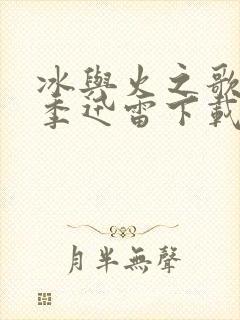 冰與火之歌
季迅雷下載
月半無聲